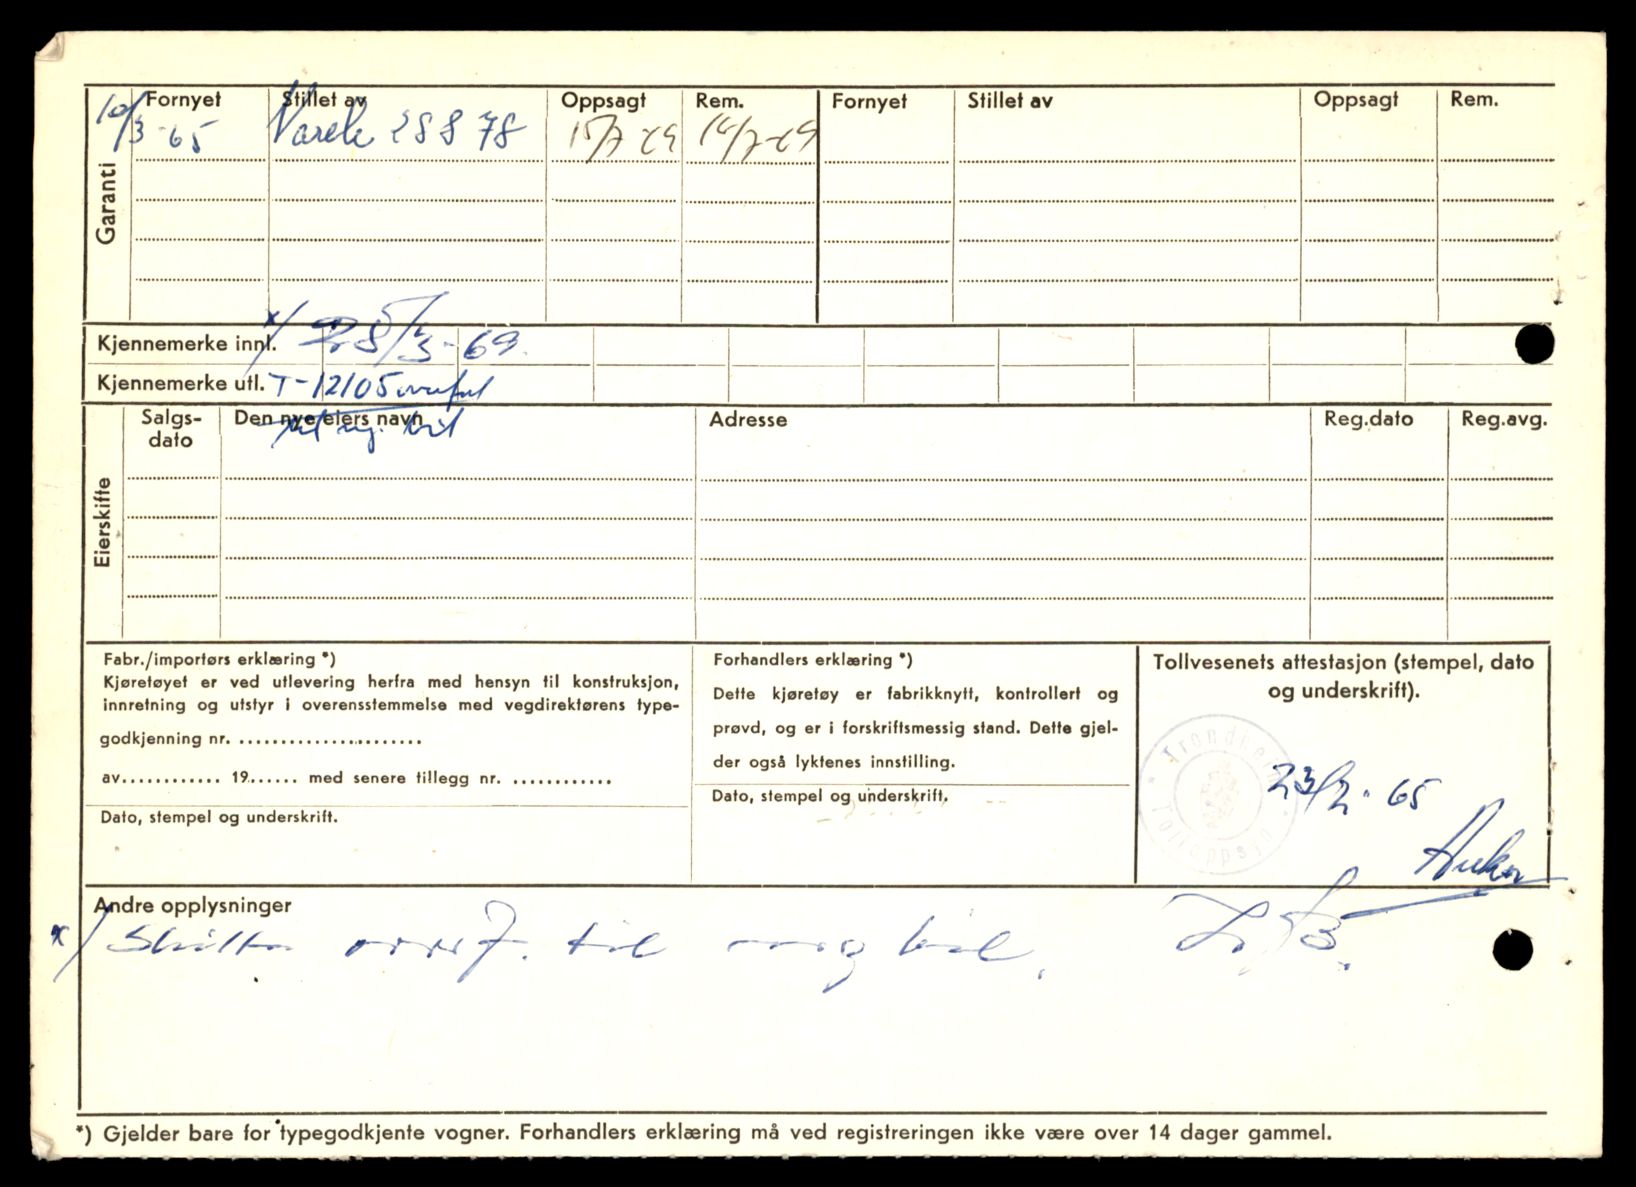 Garanti
Fornyet Stillet av Oppsagt Rem. Fornyet Stillet av Oppsagt Rem.
10/3-65 28878 15/7-69
Kjennemerke innl. x/ 5/3-69
Kjennemerke utl. T-12105 overført
til ny bil
Eierskifte
Salgs-dato Den nye eiers navn Adresse Reg.dato Reg.avg.
Fabr./importørs erklæring *)
Kjøretøyet er ved utlevering herfra med hensyn til konstruksjon,
innretning og utstyr i overensstemmelse med vegdirektørens type-
godkjenning nr. ......................
av............ 19...... med senere tillegg nr. ............
Dato, stempel og underskrift.
Forhandlers erklæring *)
Dette kjøretøy er fabrikknytt, kontrollert og
prøvd, og er i forskriftsmessig stand. Dette gjel-
der også lyktenes innstilling.
Dato, stempel og underskrift.
Tollvesenets attestasjon (stempel, dato
og underskrift).
Trondheim Tolloppsyn
23/2-65
Andre opplysninger
x/ Skilter overf. til ny bil.
*) Gjelder bare for typegodkjente vogner. Forhandlers erklæring må ved registreringen ikke være over 14 dager gammel.